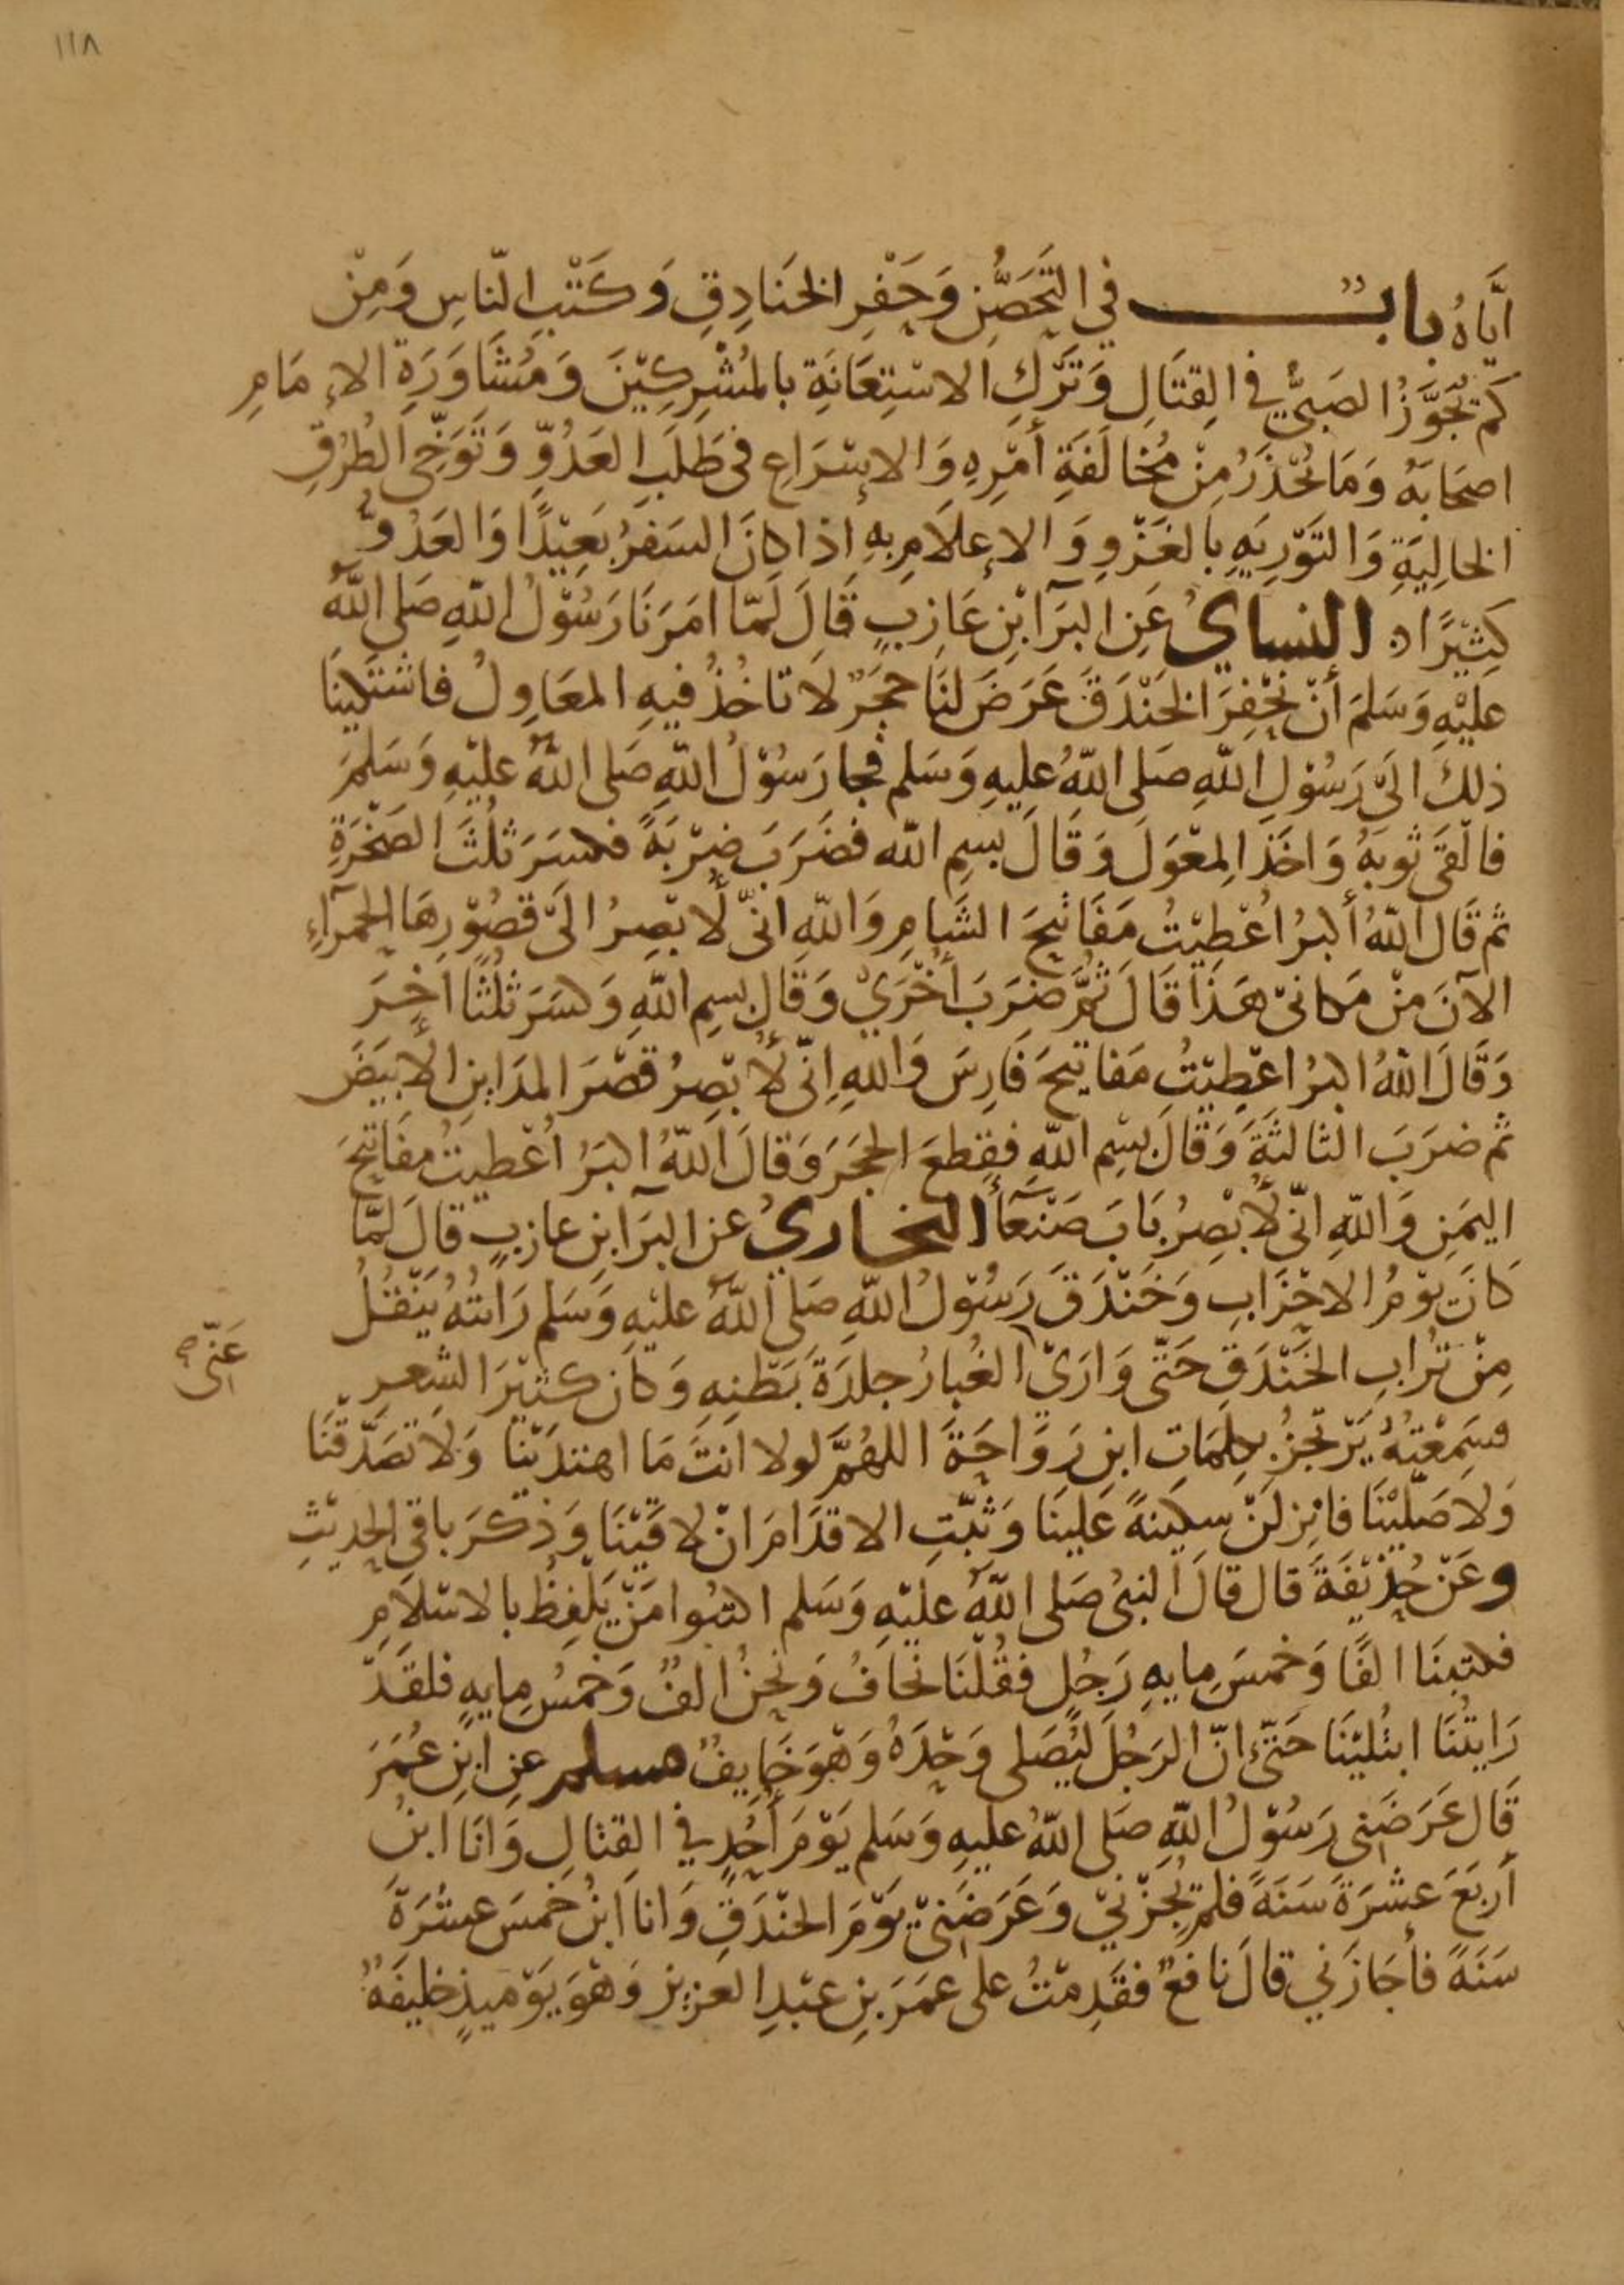 ١١٨
اِيَّاهُ بابٌ في التَّحَصُّنِ وَحَفْرِ الخَنَادِقِ وَكَتْبِ النّاسِ وَمِنْ
كم يُجَوَّزُ الصَبيُّ في القِتَالِ وَتَركِ الاسْتِعَانَةِ بالمُشْرِكِيْنَ وَمُشَاوَرَةِ الإمَامِ
اصحَابَهُ وَمَا يُحْذَرُ مِنْ مُخَالَفَةِ أمْرِهِ وَالاِسْرَاعِ في طَلَبِ العَدُوِّ وَتَوَخِّي الطُرُقِ
الخَالِيَةِ وَالتَوْرِيَهِ بِالغَزْوِ وَالإعلَامِ بهِ اذا كانَ السَفَرُ بَعِيْدًا وَالعَدُوُّ
كَثِيْرًا ه النساي عَنِ البَرَآ ابْنِ عَازِبٍ قَالَ لَمّا امَرَنَا رَسُوْلُ اللّهِ صَلى اللّهُ
عليْهِ وَسَلمَ أنْ نَحْفِرَ الخَنْدَقَ عَرَضَ لنَا حجَرٌ لا تاخُذُ فيهِ المعَاوِلُ فاشتَكينَا
ذلكَ الَى رَسُوْلِ اللّهِ صَلى اللّهُ عليهِ وَسَلم فجا رَسُوْلُ اللّهِ صَلى اللّهُ عليْهِ وَسَلمَ
فالقَى ثوبَهُ وَاخَذ المِعْوَلَ وَقَالَ بسِمِ اللّه فضَرَبَ ضرْبَةً فكسَرَ ثلُثَ الصَخْرَةِ
ثم قَال اللّهُ أكبرُ اعُطِيْتُ مَفَاتيحَ الشَامِ وَاللّهِ انّي لَأبْصِرُ الَى قصُوْرِهَا الحمرَآءِ
الآنَ مِنْ مَكانيْ هَذَا قَالَ ثُمَّ ضَرَبَ أخْرَيْ وَقَال بسِمِ اللّهِ وَكسَرَ ثلُثًا آخِرَ
وَقَالَ اللّهُ اكبرُ اعْطِيْتُ مَفاتيحَ فَارِسَ وَاللهِ اِنّي لَأُبْصِرُ قصْرَ المدَاينِ الأبيَضَ
ثم ضرَبَ الثالثَةَ وَقَالَ بسْمِ اللّه فقطعَ الحجَرَ وَقالَ اللّهُ اكبَرُ اعُطيتُ مفَاتيحَ
اليمَنِ وَاللّهِ انّي لَأُبْصِرُ بَابَ صَنْعَآأ البخاريُ عن البرَآ ابنِ عازبٍ قالَ لمَّا
كانَ يوْمُ الاحْزَابِ وَخَنْدَقَ رَسُوْلُ اللّهِ صَلى اللّهُ عليْهِ وَسَلم رَايتُهُ يَنْقُلُ
مِنْ تُرابِ الخَنْدَقِ حَتّى وَارَيْ الغُبارُ جلدَةَ بَطْنِهِ وَكانَ كثيْرَ الشِعرِ
عَنّي صح
فسَمِعْتُهُ يَرْتَجزُ بكلِمَاتِ ابنِ رَوَاحَةَ اللهُمَّ لولا انتَ مَا اهتدَيْنا وَلا تصَدَّقْنَا
وَلا صَلّيْنَا فانْزِلنْ سكينةً عَلينَا وَثبّتِ الاقدَامَ انْ لاقَيْنَا وَذكرَ باقي الحديثِ
وعَنْ حُذيْفَةَ قال قالَ النبيُ صَلى اللّهُ عَليْهِ وَسَلم اكتبُوا مَنْ يَلْفِظُ بالاسْلَامِ
فكتبنَا الفًا وَخمسَ مايهِ رَجُلٍ فقُلْنَا نخَافُ وَنحنُ الفٌ وَخمسُ مِايهٍ فلقَدْ
رَايتُنَا ابتُليْنَا حَتّى انّ الرَجُلَ ليُصَلى وَحْدَهُ وَهْوَ خَايفٌ مسلم عنِ ابْنِ عُمَرَ
قَالَ عَرَضَنِى رَسُوْلُ اللّهِ صَلى اللّهُ عليهِ وَسَلم يَوْمَ أحُدٍ في القِتَالِ وَانَا ابنُ
أربَعَ عشرَةَ سَنَةً فلم يُجزْنيْ وَعَرَضَنيْ يَوْمَ الخنْدَقِ وَانا ابنُ خَمسَ عشرَةَ
سَنَةً فأجَازَنيْ قالَ نافعٌ فقَدِمْتُ على عمَرَ بنِ عبْدِ العزيز وَهْوَ يَوْميذٍ خليفَةٌ